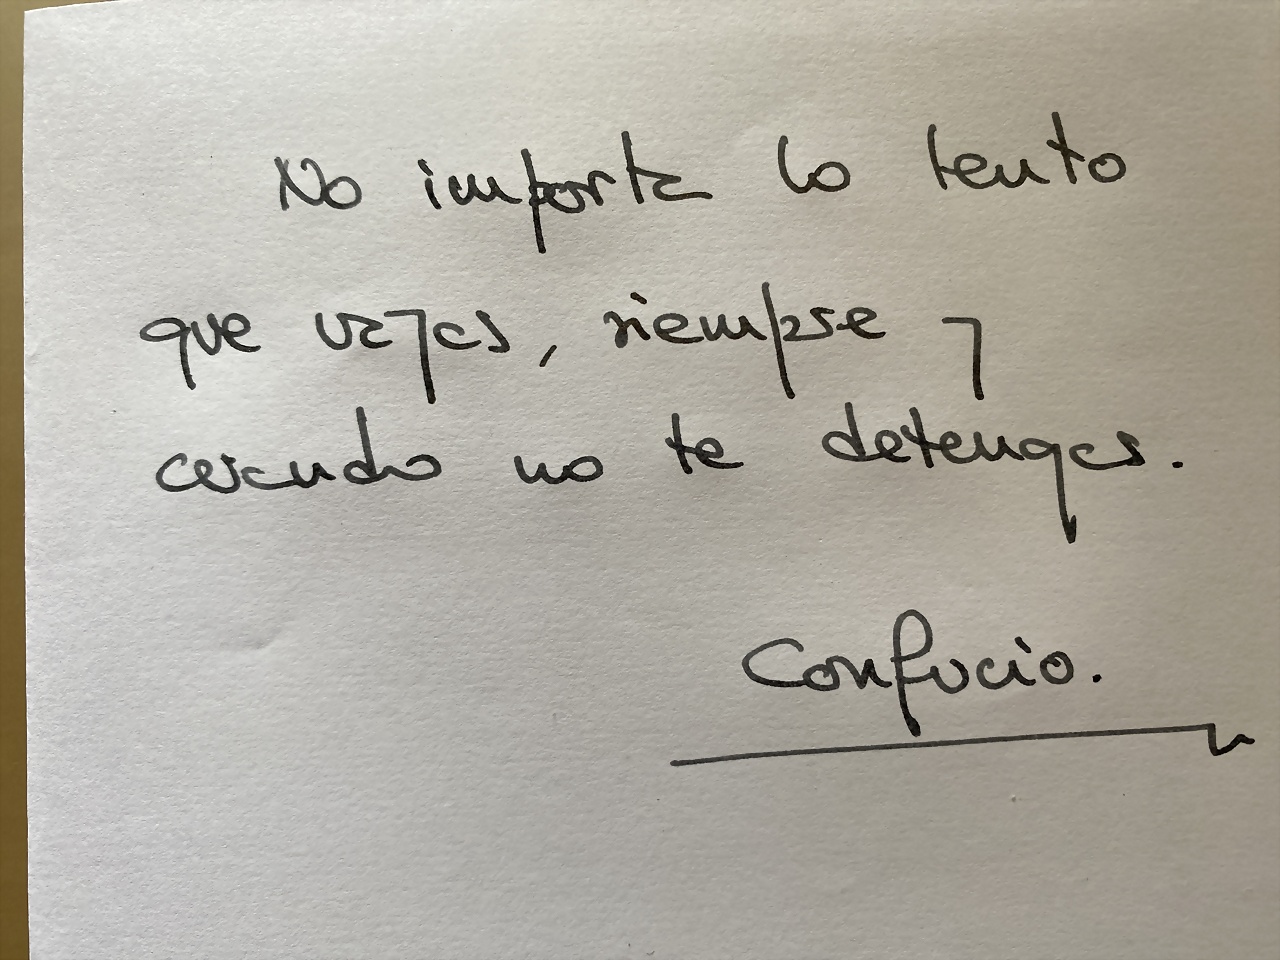 No importa lo lento
que vayas, siempre y
cuando no te detengas.
Confucio.